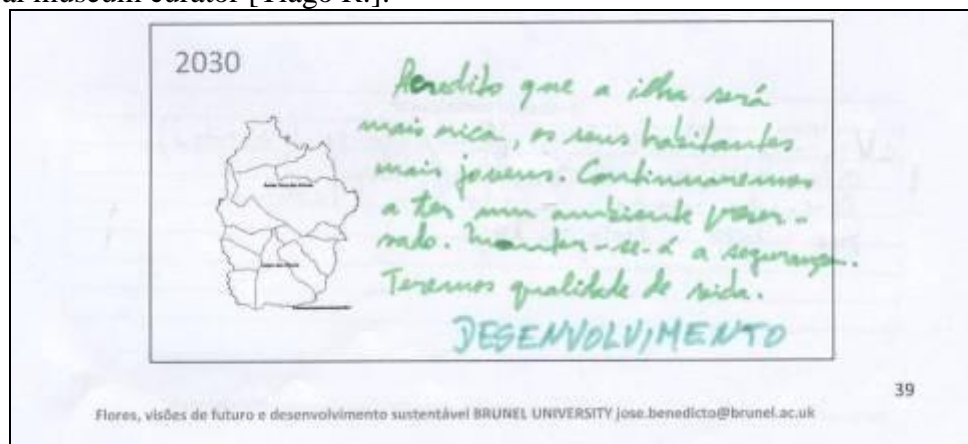 al museum curator [Tiago R.].
2030
Acredito que a ilha será
mais rica, os seus habitantes
mais jovens. Continuaremos
a ter um ambiente preser-
vado. Manter-se-á a segurança.
Teremos qualidade de vida.
DESENVOLVIMENTO
39
Flores, visões de futuro e desenvolvimento sustentável BRUNEL UNIVERSITY jose.benedicto@brunel.ac.uk